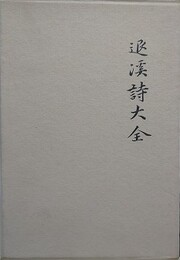 退溪詩大全